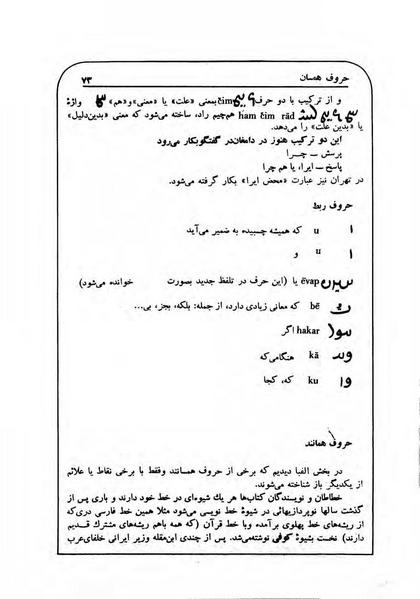 حروف همسان ۷۳
و از ترکیب با دو حرف čim بمعنی «علت» یا «معنی» و «هم» واژهٔ
ham čim rād هم‌چیم راد، ساخته میشود که معنی «بدین‌دلیل»
یا «بدین علت» را می‌دهد.
این دو ترکیب هنوز در دامغان در گفتگو بکار می‌رود
پرسش ــ چــرا
پاسخ ــ ایرا، یا هم چرا
در تهران نیز عبارت «محض ایرا» بکار گرفته می‌شود.
حروف ربط
u که همیشه چسبیده به ضمیر می‌آید
u و
ēvap یا (این حرف در تلفظ جدید بصورت خوانده می‌شود)
bē که معانی زیادی دارد، از جمله: بلکه، بجز، بی...
hakar اگر
kā هنگامی‌که
ku که، کجا
حروف همانند
در بخش الفبا دیدیم که برخی از حروف همسانند وفقط با برخی نقاط یا علائم
از یکدیگر باز شناخته می‌شوند.
خطاطان و نویسندگان کتاب‌ها هر یك شیوه‌ای در خط خود دارند و باری پس از
گذشت سالها نوپردازیهائی در شیوهٔ خط نویسی می‌شود مثلا همین خط فارسی دری‌که
از ریشه‌های خط پهلوی برآمده وبا خط قرآن (که همه باهم ریشه‌های مشترك قدیم
دارند) نخست بشیوهٔ کوفی نوشته‌می‌شد. پس از چندی ابن‌مقله وزیر ایرانی خلفای‌عرب